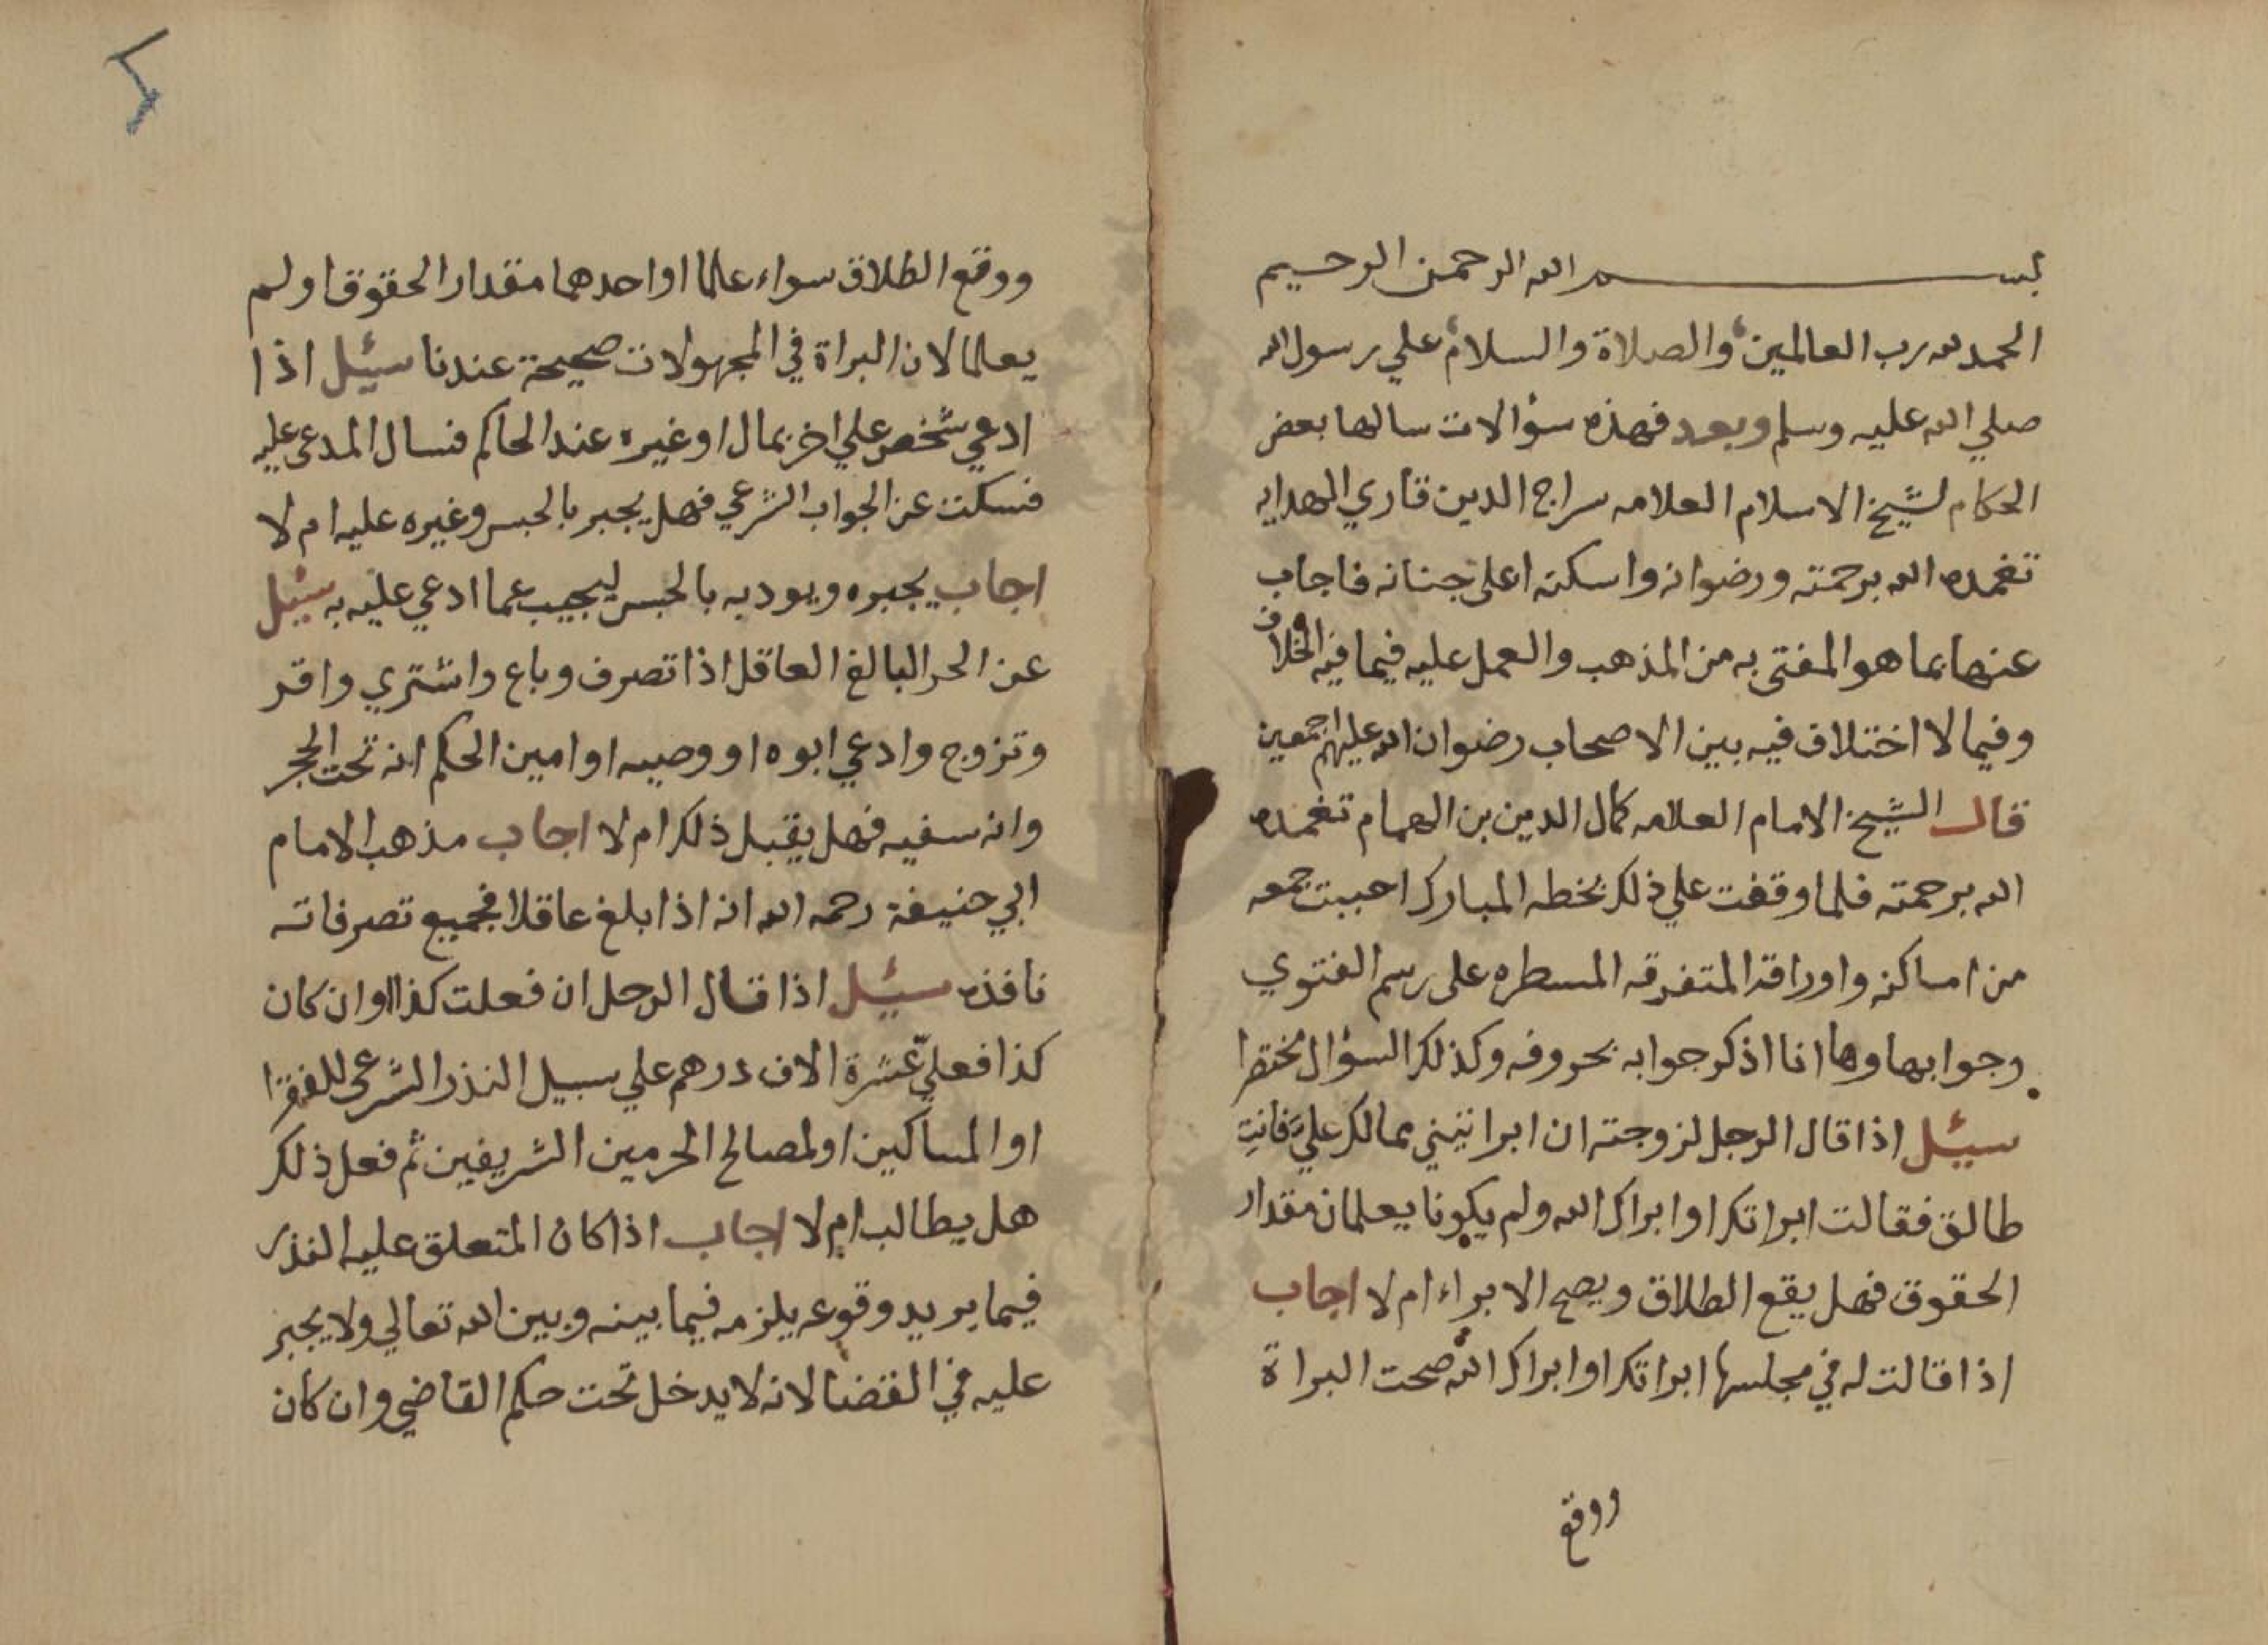 بسم الله الرحمن الرحيم
الحمد لله رب العالمين والصلاة والسلام علي رسول الله
صلي الله عليه وسلم وبعد فهذه سؤالات سالها بعض
الحكام لشيخ الاسلام العلامه سراج الدين قاري الهدايه
تغمده الله برحمته ورضوانه واسكنه اعلى جنانه فاجاب
عنها بما هو المفتى به من المذهب والعمل عليه فيما فيه الخلاف
وفيما لا اختلاف فيه بين الاصحاب رضوان الله عليهم اجمعين
قال الشيخ الامام العلامه كمال الدين بن الهمام تغمده
الله برحمته فلما وقفت علي ذلك بخطه المبارك احببت جمعه
من اماكنه واوراقه المتفرقه المسطره على رسم الفتوي
وجوابها وها انا اذكر جوابه بحروفه وكذلك السؤال مختصرا
سئل اذا قال الرجل لزوجته ان ابراتيني مما لك عليّ فانتِ
طالق فقالت ابراتك او ابراك الله ولم يكونا يعلمان مقدار
الحقوق فهل يقع الطلاق ويصح الابراء ام لا اجاب
اذا قالت له في مجلسها ابراتك او ابراك الله صحت البراة
ووقع
ووقع الطلاق سواء علما او احدهما مقدار الحقوق او لم
يعلما لان البراة في المجهولات صحيحة عندنا سئل اذا
ادعي شخص علي اخر بمال او غيره عند الحاكم فسال المدعى عليه
فسكت عن الجواب الشرعي فهل يجبر بالحبس وغيره عليه ام لا
اجاب يجبره ويودبه بالحبس ليجيب عما ادعي عليه به سئل
عن الحر البالغ العاقل اذا تصرف وباع واشتري واقر
وتزوج وادعي ابوه او وصيه او امين الحكم انه تحت الحجر
وانه سفيه فهل يقبل ذلك ام لا اجاب مذهب الامام
ابي حنيفة رحمه الله انه اذا بلغ عاقلا فجميع تصرفاته
نافذه سئل اذا قال الرجل ان فعلت كذا او ان كان
كذا فعليّ عشرة الاف درهم علي سبيل النذر الشرعي للفقرا
او المساكين او لمصالح الحرمين الشريفين ثم فعل ذلك
هل يطالب ام لا اجاب اذا كان المتعلق عليه النذر
فيما يريد وقوعه يلزمه فيما بينه وبين الله تعالي ولا يجبر
عليه في القضا لانه لا يدخل تحت حكم القاضي وان كان